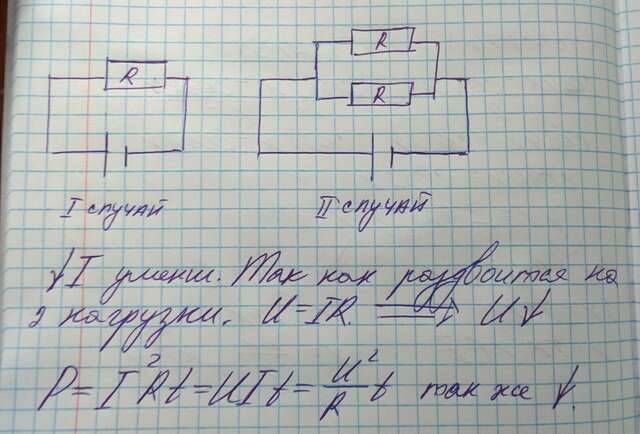 R
R
R
I случай
II случай
↓I уменш. Так как раздвоится на
2 нагрузки. U=IR. ⟹ U↓
P=I²Rt=UIt=U²/R t так же ↓.